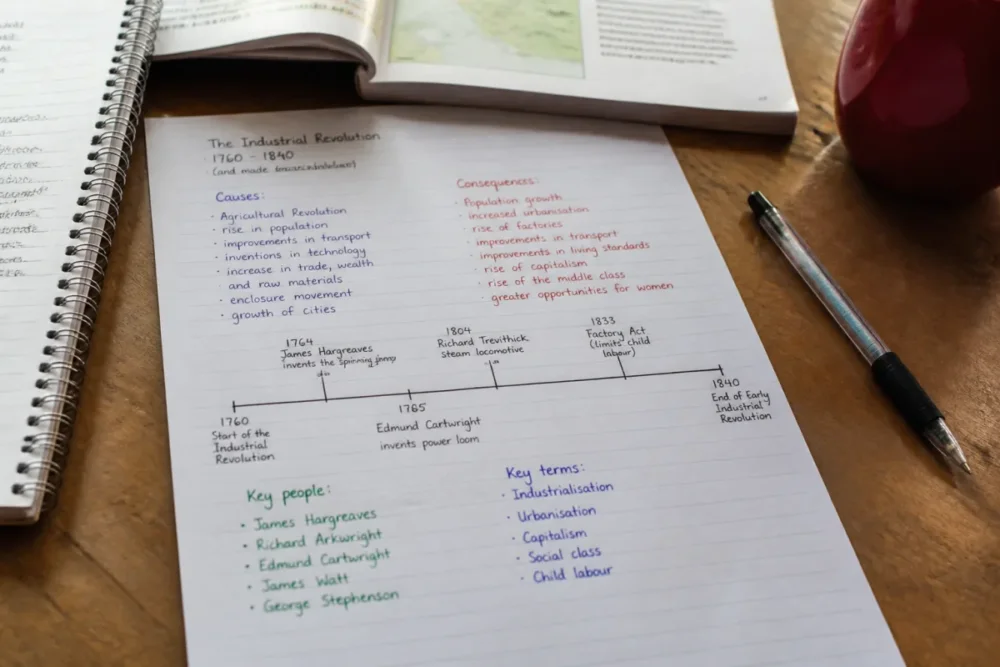 The Industrial Revolution
1760 - 1840
(and made
Causes:
· Agricultural Revolution
· rise in population
· improvements in transport
· inventions in technology
· increase in trade, wealth
· and raw materials
· enclosure movement
· growth of cities
Consequences:
· Population growth
· increased urbanisation
· rise of factories
· improvements in transport
· improvements in living standards
· rise of capitalism
· rise of the middle class
· greater opportunities for women
1764
James Hargreaves
invents the spinning
1804
Richard Trevithick
steam locomotive
1833
Factory Act
(limits child
labour)
1760
Start of the
Industrial
Revolution
1765
Edmund Cartwright
invents power loom
1840
End of Early
Industrial
Revolution
Key people:
• James Hargreaves
• Richard Arkwright
• Edmund Cartwright
• James Watt
• George Stephenson
Key terms:
· Industrialisation
· Urbanisation
· Capitalism
· Social class
· Child labour